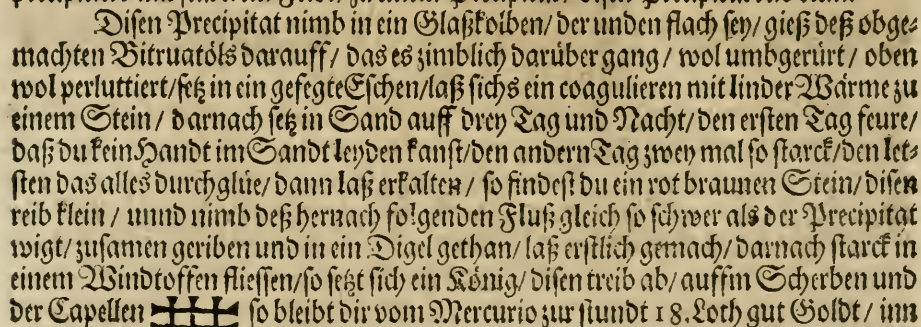 Disen Precipitat nimb in ein Glaßkolben/ der unden flach sey/ gieß deß obge-
machten Vitruatöls darauff/ das es zimblich darüber gang/ wol umbgerürt/ oben
wol perluttiert/ setz in ein gefegte Eschen/ laß sichs ein coagulieren mit linder Wärme zu
einem Stein/ darnach setz in Sand auff drey Tag und Nacht/ den ersten Tag feure/
daß du kein Handt im Sandt leyden kanst/ den andern Tag zwey mal so starck/ den let-
sten das alles durchglüe/ dann laß erkalten/ so findest du ein rot braunen Stein/ disen
reib klein/ unnd nimb deß hernach folgenden Fluß gleich so schwer als der Precipitat
wigt/ zusamen geriben und in ein Digel gethan/ laß erstlich gemach/ darnach starck in
einem Windtoffen fliessen/ so setzt sich ein König/ disen treib ab/ auffm Scherben und
der Capellen so bleibt dir vom Mercurio zur stundt 18. Loth gut Goldt/ inn